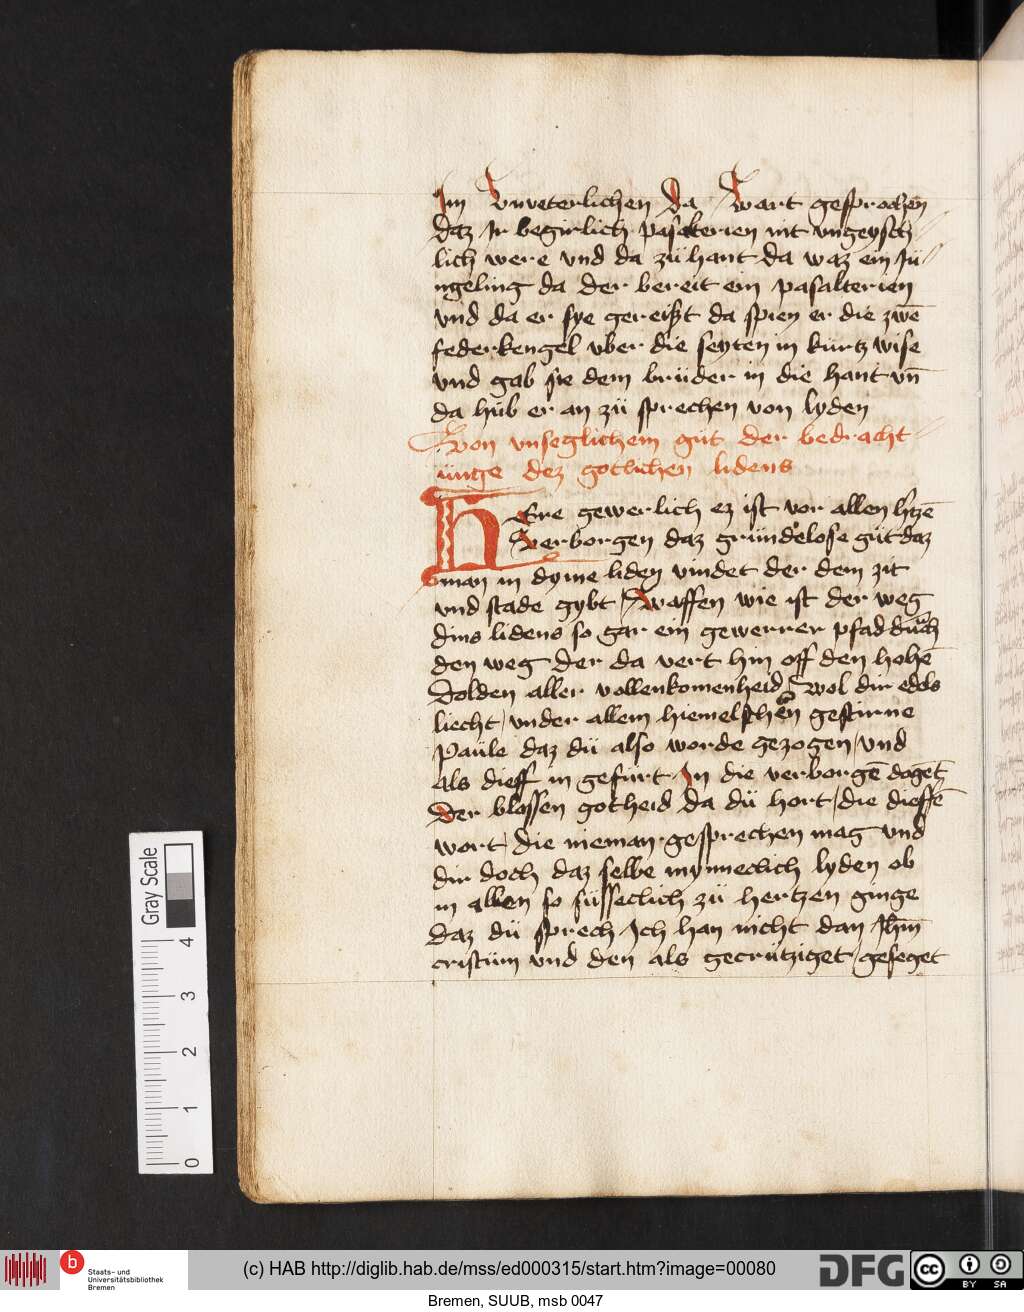 Im Vnveterlichen da Wart gesprochen
daz Ir begirlich pasalterien nit vngeysch
lich were vnd da zü hant da waz ein Jü
ngeling da der bereit ein pasalterien
vnd da er sye gereißt da spien er die zwē
federkengel vber die seyten in kürtz wise
vnd gab sie dem brüder in die hant vn̄
da hüb er an zü sprechen von lyden
Von vnseglichem güt der bedracht
ünge dez gotlichen lidens
HEre gewerlich ez ist vor allen htzē
Verborgen daz gründelose güt daz
man in dyme liden vindet der dem zit
vnd stade gybt Waffen wie ist der weg
dins lidens so gar ein gewerrer pfad durch
den weg der da vert hin off den hohē
dolden aller vollenkomenheid Wol dir edels
liecht vnder allem hiemelschen gestirne
Paüle daz dü also worde gezogen vnd
als dieff in gefürt In die verborgē doget
Der blossen gotheid da dü hort die dieffē
wort die nieman gesprechen mag vnd
dir doch daz selbe mynneclich lyden ob
in allen so süsseclich zü hertzen ginge
daz dü sprech Ich han nicht dan Jhm̄
cristüm vnd den als gecrütziget geseget
Gray Scale
4
3
2
1
0
b
Staats- und
Universitätsbibliothek
Bremen
(c) HAB http://diglib.hab.de/mss/ed000315/start.htm?image=00080
DFG
cc
BY SA
Bremen, SUUB, msb 0047